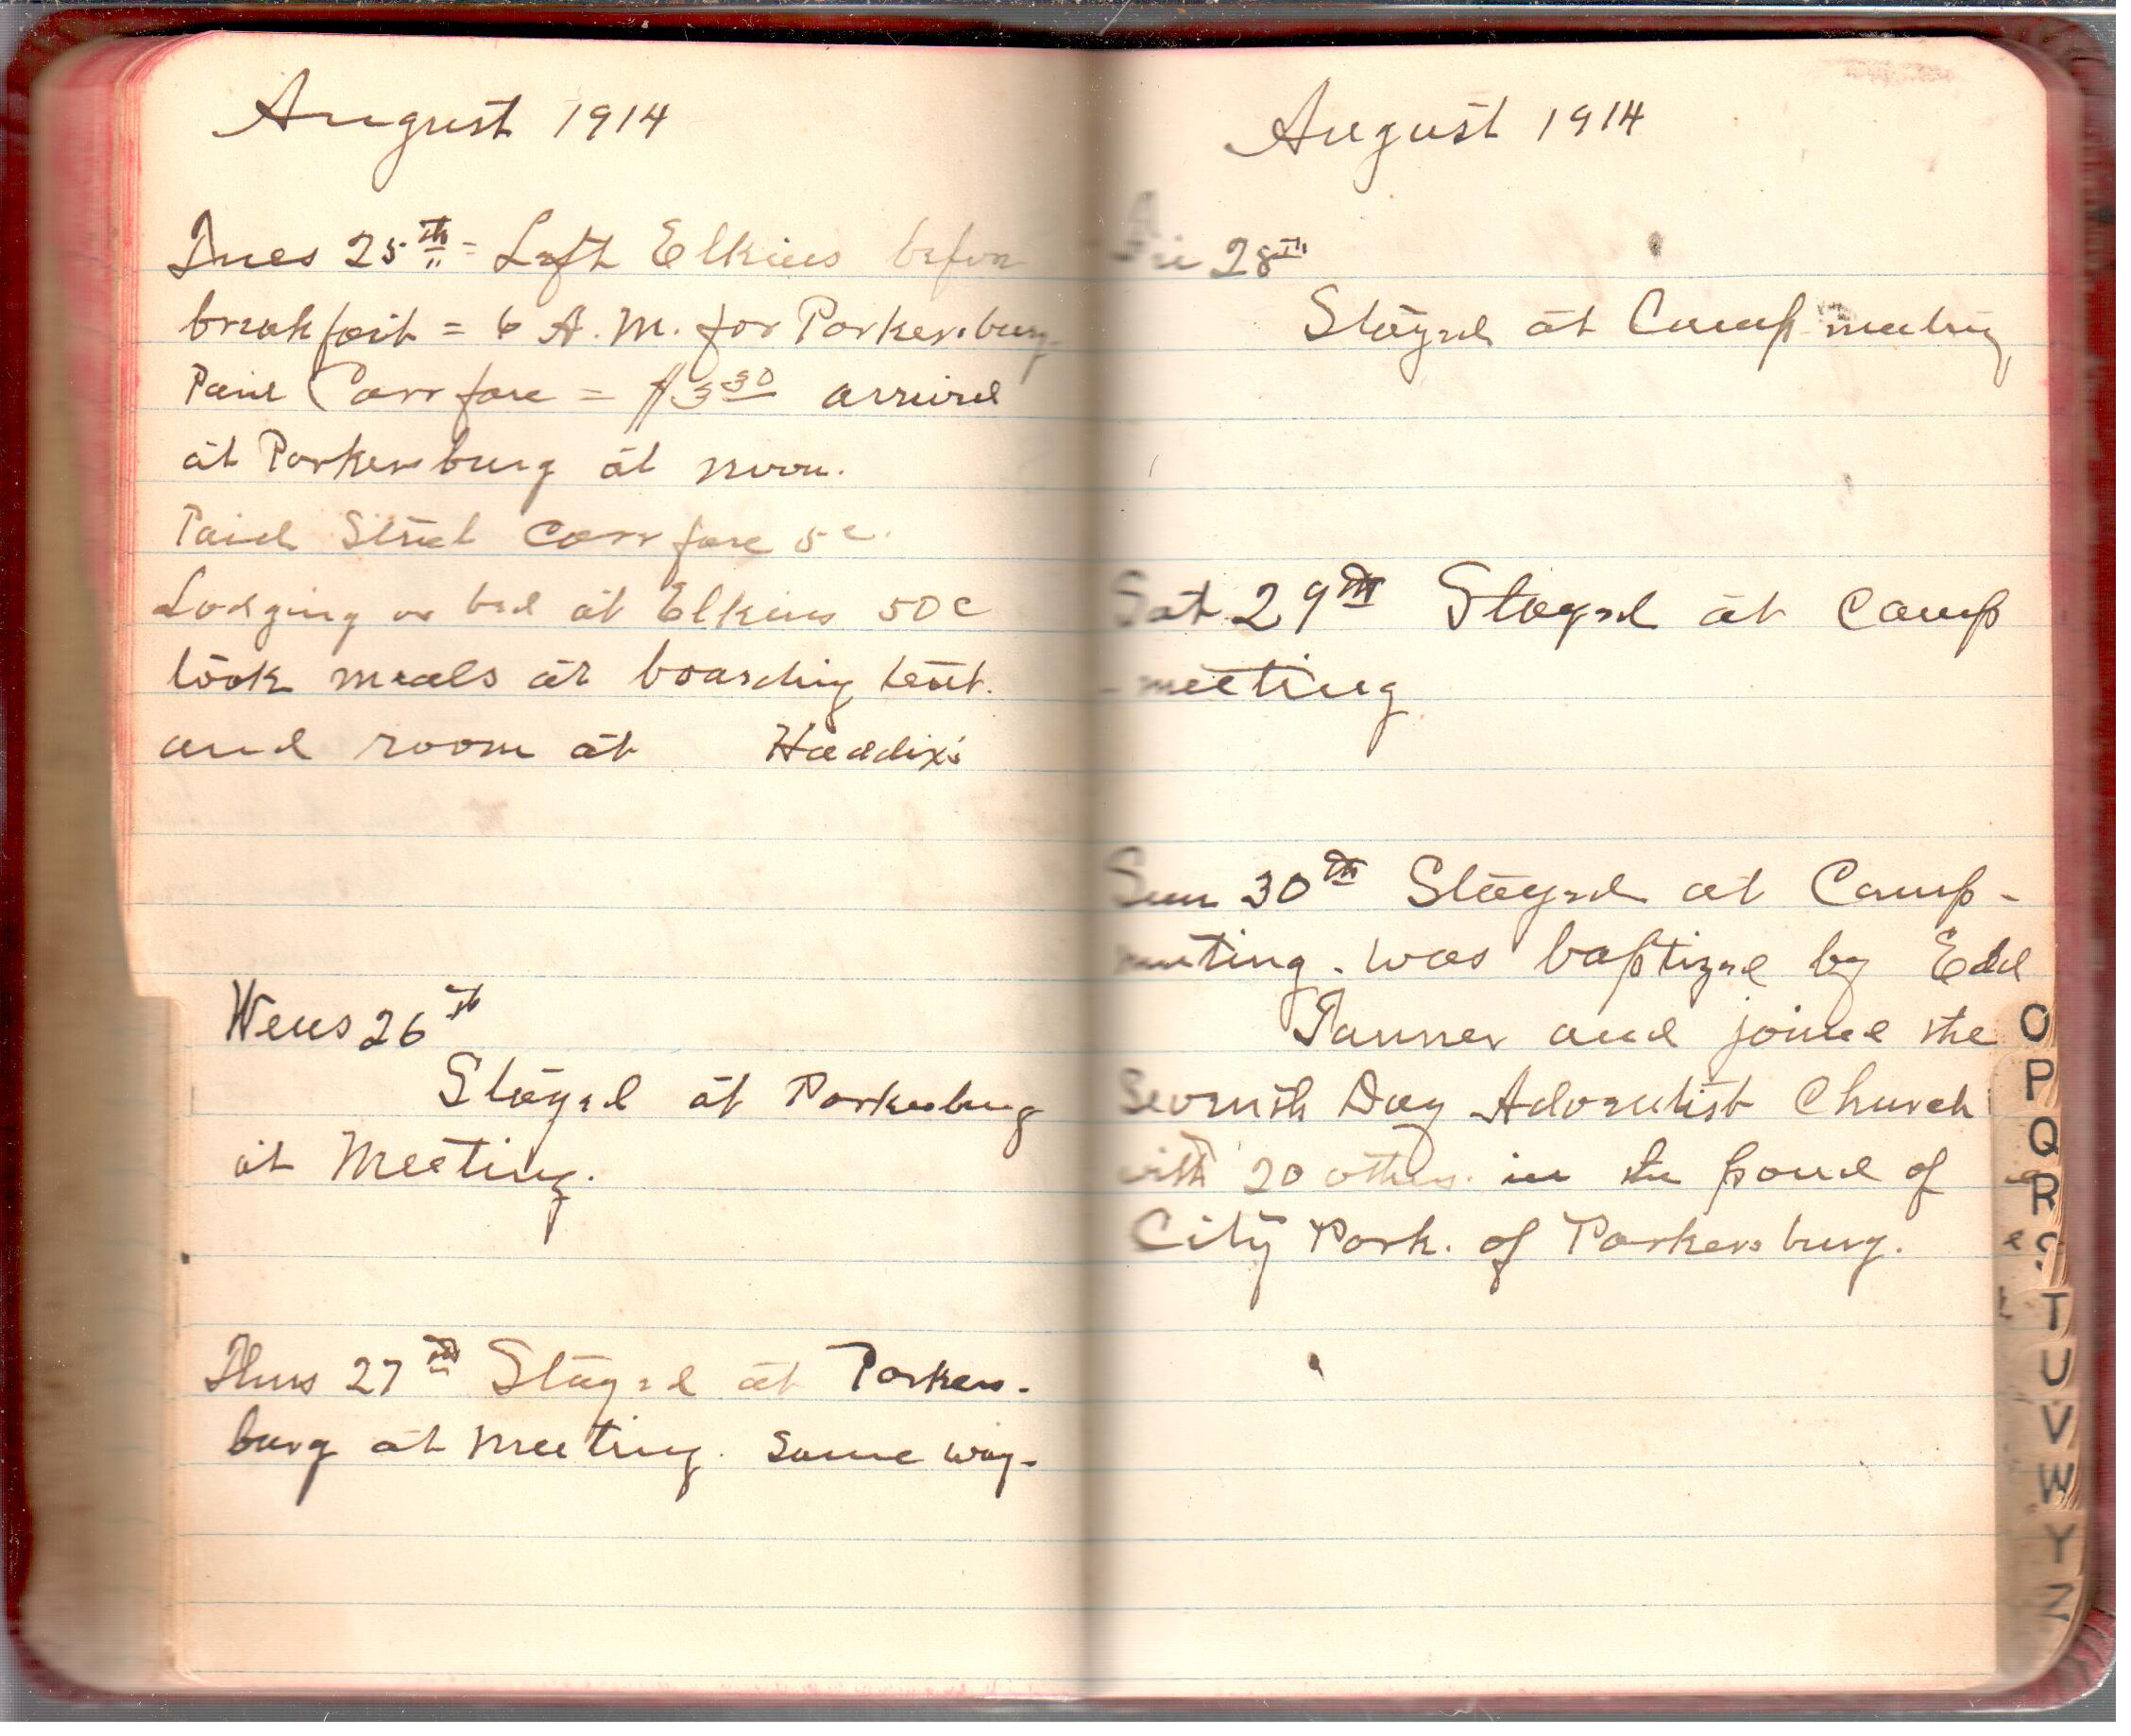 August 1914
Tues 25th = Left Elkins before
breakfast = 6 A.M. for Parkersburg
Paid Carr fare = $3 30 arrived
at Parkersburg at noon.
Paid Street Carr fare 5c.
Lodging or bed at Elkins 50c
took meals at boarding tent.
and room at Haddix's
Wens 26th
Stayed at Parkersburg
at Meeting.
Thurs 27th Stayed at Parkers-
burg at Meeting. Same way-
August 1914
Fri 28th
Stayed at Camp-meeting
Sat 29th Stayed at Camp
-meeting
Sun 30th Stayed at Camp-
meeting. was baptized by Edd
Tanner and joined the
Seventh Day Adventist Church
with 20 others. in the pond of
City Park. of Parkersburg.
O
P
Q
R
S
T
U
V
W
Y
Z